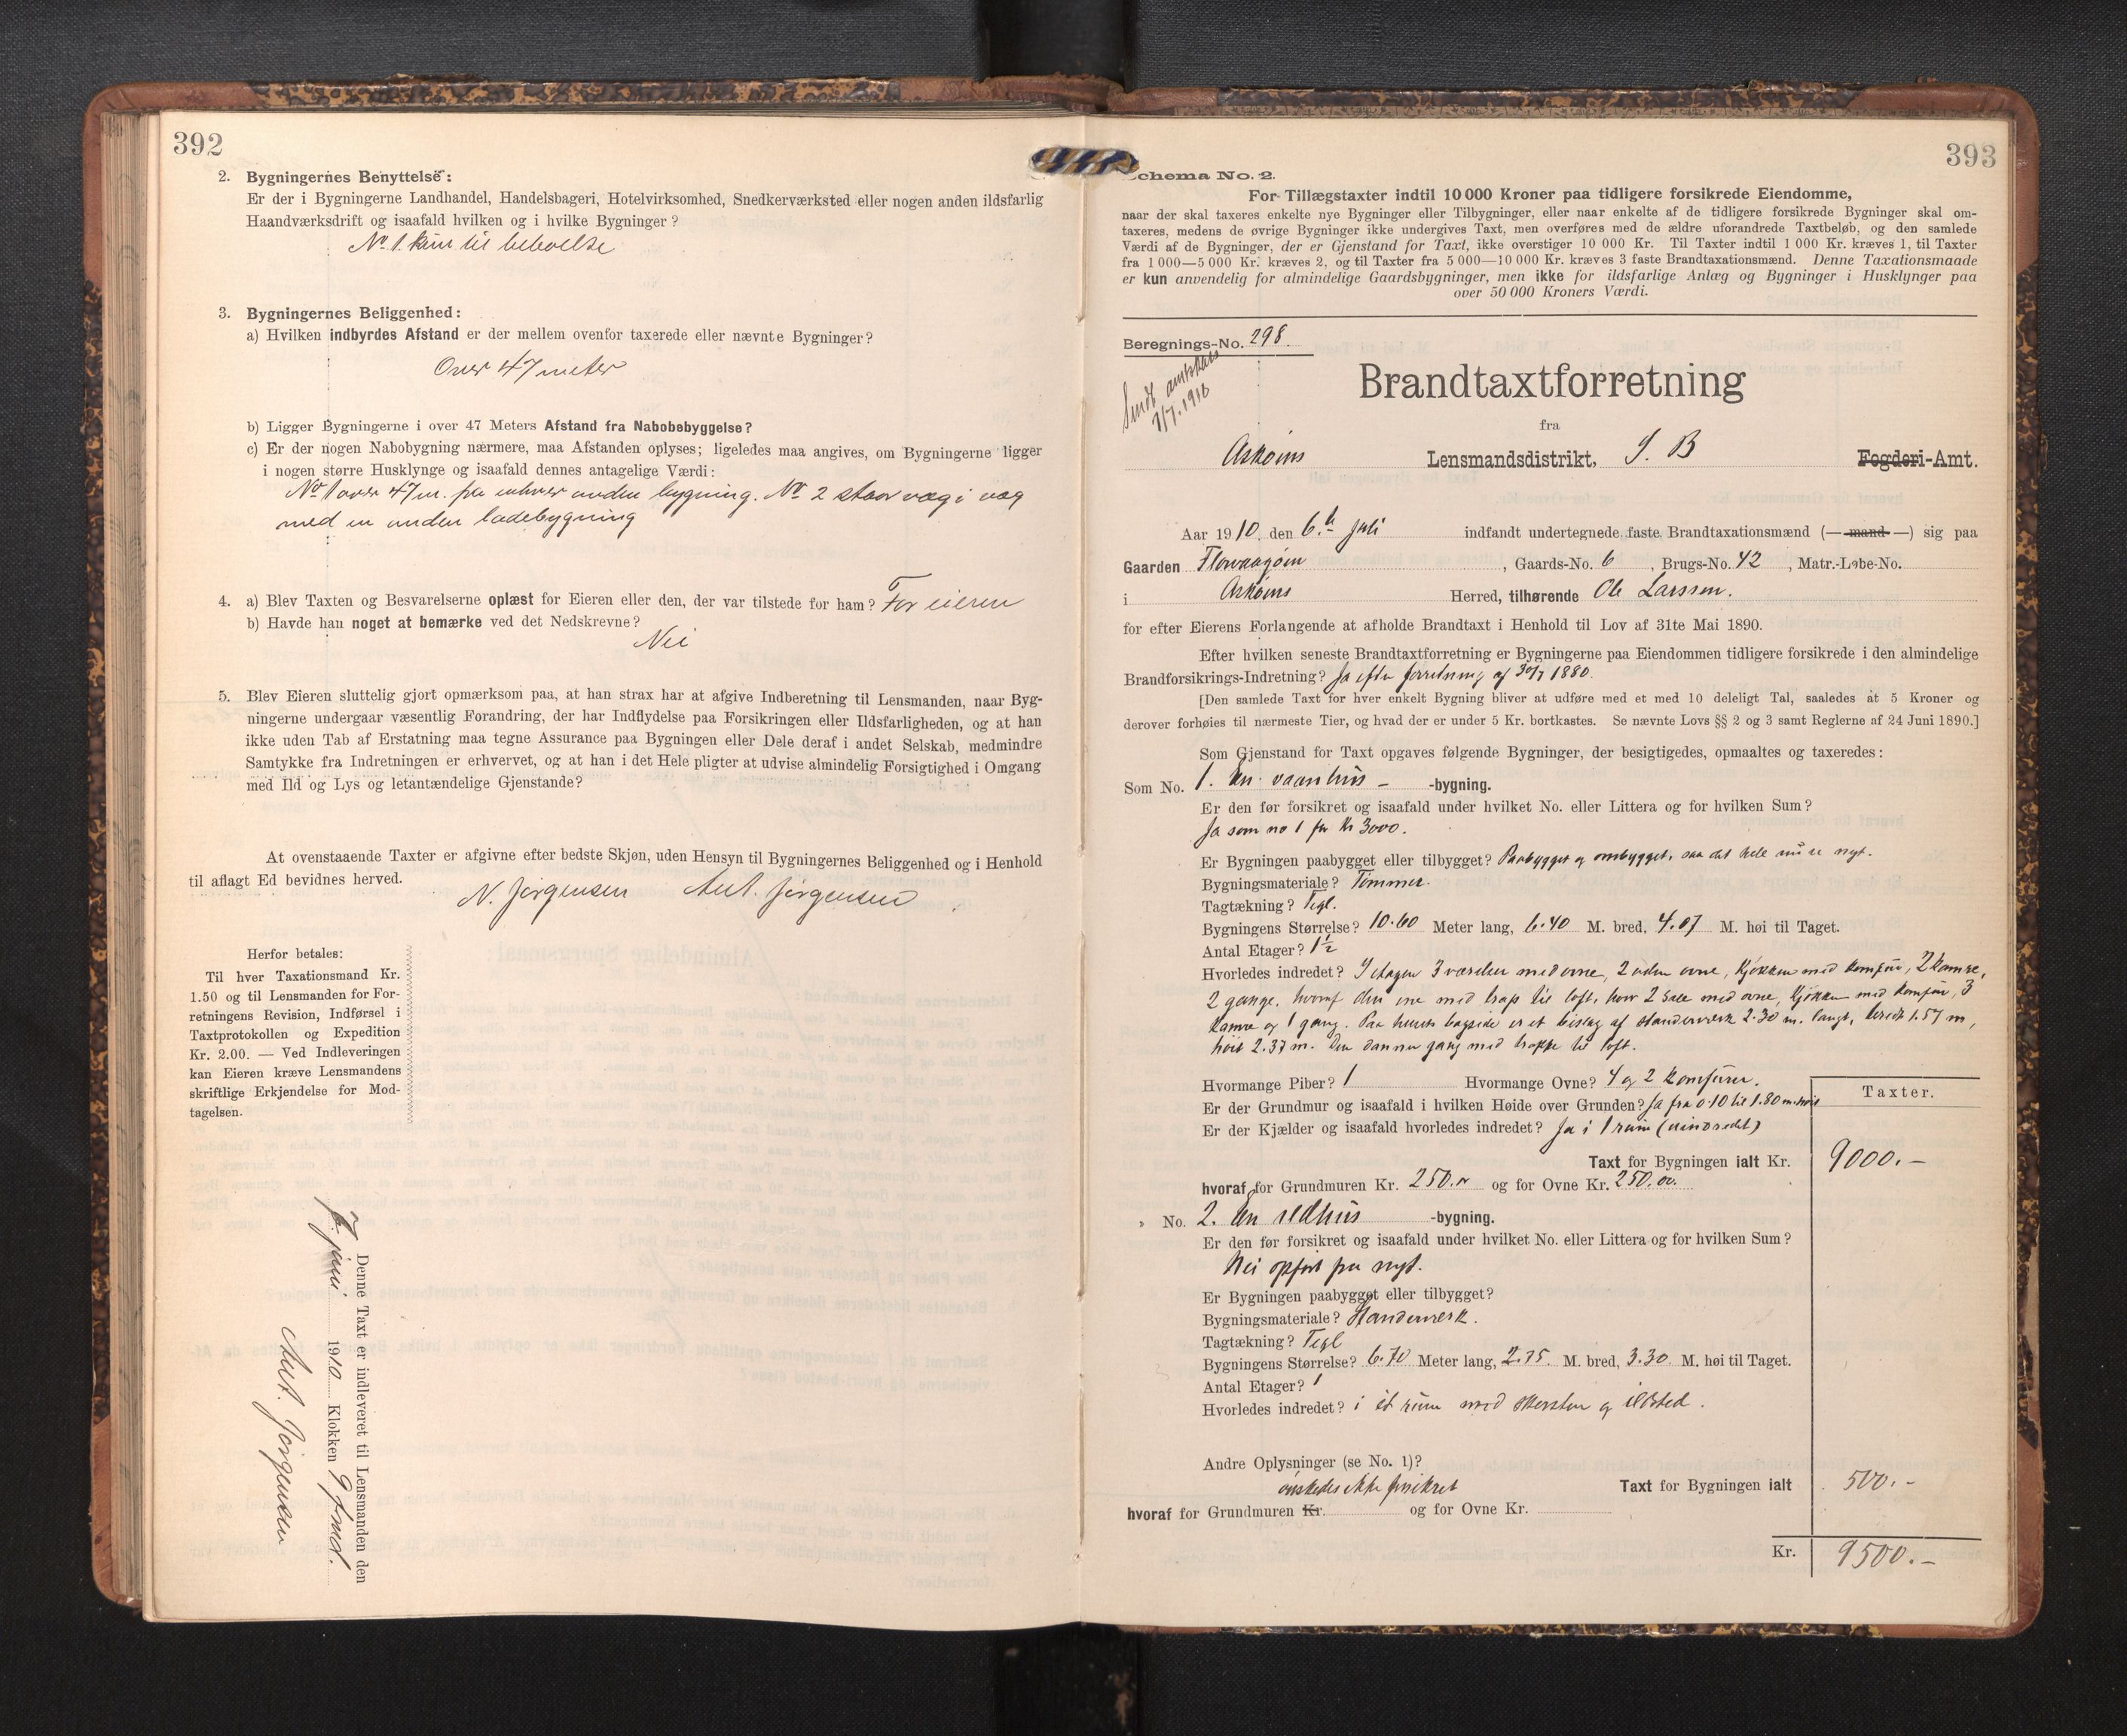 392
2. Bygningernes Benyttelse:
Er der i Bygningerne Landhandel, Handelsbageri, Hotelvirksomhed, Snedkerværksted eller nogen anden ildsfarlig
Haandværksdrift og isaafald hvilken og i hvilke Bygninger?
No 1. kun til beboelse
3. Bygningernes Beliggenhed:
a) Hvilken indbyrdes Afstand er der mellem ovenfor taxerede eller nævnte Bygninger?
Over 47 meter
b) Ligger Bygningerne i over 47 Meters Afstand fra Nabobebyggelse?
c) Er der nogen Nabobygning nærmere, maa Afstanden oplyses; ligeledes maa angives, om Bygningerne ligger
i nogen større Husklynge og isaafald dennes antagelige Værdi:
No 1 over 47 m. fra enhver anden bygning. No 2 staar væg i væg
med en anden ladebygning
4. a) Blev Taxten og Besvarelserne oplæst for Eieren eller den, der var tilstede for ham? For eieren
b) Havde han noget at bemærke ved det Nedskrevne?
Nei
5. Blev Eieren sluttelig gjort opmærksom paa, at han strax har at afgive Indberetning til Lensmanden, naar Byg-
ningerne undergaar væsentlig Forandring, der har Indflydelse paa Forsikringen eller Ildsfarligheden, og at han
ikke uden Tab af Erstatning maa tegne Assurance paa Bygningen eller Dele deraf i andet Selskab, medmindre
Samtykke fra Indretningen er erhvervet, og at han i det Hele pligter at udvise almindelig Forsigtighed i Omgang
med Ild og Lys og letantændelige Gjenstande?
At ovenstaaende Taxter er afgivne efter bedste Skjøn, uden Hensyn til Bygningernes Beliggenhed og i Henhold
til aflagt Ed bevidnes herved.
N. Jørgensen Ant. Jørgensen
Herfor betales:
Til hver Taxationsmand Kr.
1.50 og til Lensmanden for For-
retningens Revision, Indførsel i
Taxtprotokollen og Expedition
Kr. 2.00. — Ved Indleveringen
kan Eieren kræve Lensmandens
skriftlige Erkjendelse for Mod-
tagelsen.
Denne Taxt er indleveret til Lensmanden den
7 juni 1910 Klokken 9 fmd.
Ant. Jørgensen
393
Schema No. 2.
For Tillægstaxter indtil 10 000 Kroner paa tidligere forsikrede Eiendomme,
naar der skal taxeres enkelte nye Bygninger eller Tilbygninger, eller naar enkelte af de tidligere forsikrede Bygninger skal om-
taxeres, medens de øvrige Bygninger ikke undergives Taxt, men overføres med de ældre uforandrede Taxtbeløb, og den samlede
Værdi af de Bygninger, der er Gjenstand for Taxt, ikke overstiger 10 000 Kr. Til Taxter indtil 1 000 Kr. kræves 1, til Taxter
fra 1 000—5 000 Kr. kræves 2, og til Taxter fra 5 000—10 000 Kr. kræves 3 faste Brandtaxationsmænd. Denne Taxationsmaade
er kun anvendelig for almindelige Gaardsbygninger, men ikke for ildsfarlige Anlæg og Bygninger i Husklynger paa
over 50 000 Kroners Værdi.
Beregnings-No. 298.
Sendt amtskas
7/7.1910
Brandtaxtforretning
fra
Askøens Lensmandsdistrikt, S. B Fogderi-Amt.
Aar 1910, den 6te juli indfandt undertegnede faste Brandtaxationsmænd (— mand —) sig paa
Gaarden Florvaagøen, Gaards-No. 6, Brugs-No. 42, Matr.-Løbe-No.
i Askøens Herred, tilhørende Ole Larssen.
for efter Eierens Forlangende at afholde Brandtaxt i Henhold til Lov af 31te Mai 1890.
Efter hvilken seneste Brandtaxtforretning er Bygningerne paa Eiendommen tidligere forsikrede i den almindelige
Brandforsikrings-Indretning? Ja efter forretning af 30/7 1880.
[Den samlede Taxt for hver enkelt Bygning bliver at udføre med et med 10 deleligt Tal, saaledes at 5 Kroner og
derover forhøies til nærmeste Tier, og hvad der er under 5 Kr. bortkastes. Se nævnte Lovs §§ 2 og 3 samt Reglerne af 24 Juni 1890.]
Som Gjenstand for Taxt opgaves følgende Bygninger, der besigtigedes, opmaaltes og taxeredes:
Som No. 1. En vaanhus - -bygning.
Er den før forsikret og isaafald under hvilket No. eller Littera og for hvilken Sum?
Ja som no 1 for Kr 3000.
Er Bygningen paabygget eller tilbygget? Paabygget og ombygget, saa det hele nu er nyt.
Bygningsmateriale? Tømmer.
Tagtækning? Tegl.
Bygningens Størrelse? 10.60 Meter lang, 6.40 M. bred, 4.07 M. høi til Taget.
Antal Etager? 1½
Hvorledes indredet? I etagen 3 værelser med ovne, 2 uden ovne, kjøkken med komfur, 2 kamre,
2 gange, hvoraf den ene med trap til loft, hvor 2 sale med ovne, kjøkken med komfur, 3
kamre og 1 gang. Paa husets bagside er et bislag af standerværk 2.30 m. langt, bredt 1.57 m,
høit 2.37 m. Den danner gang med trappe til loft.
Hvormange Piber? 1 Hvormange Ovne? 4 og 2 komfurer.
Er der Grundmur og isaafald i hvilken Høide over Grunden? Ja fra 0.10 til 1.80 m. høit
Er der Kjælder og isaafald hvorledes indredet? Ja i 1 rum (uindredet)
Taxter.
Taxt for Bygningen ialt Kr. 9000.-
hvoraf for Grundmuren Kr. 250.00 og for Ovne Kr. 250.00.
» No. 2. En ildhus -bygning.
Er den før forsikret og isaafald under hvilket No. eller Littera og for hvilken Sum?
Nei opført fra nyt.
Er Bygningen paabygget eller tilbygget?
Bygningsmateriale? Standerverk.
Tagtækning? Tegl
Bygningens Størrelse? 6.70 Meter lang, 2.75. M. bred, 3.30 M. høi til Taget.
Antal Etager? 1
Hvorledes indredet? i et rum med skorsten og ildsted.
Andre Oplysninger (se No. 1)?
ønskedes ikke forsikret Taxt for Bygningen ialt 500.-
hvoraf for Grundmuren Kr. og for Ovne Kr.
Kr. 9500.-